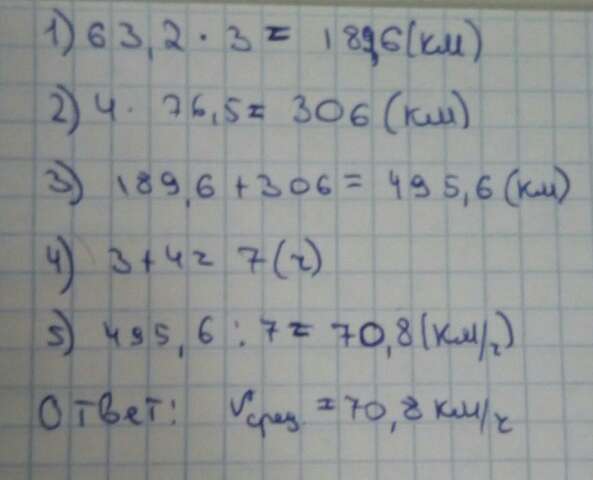 1) 63,2 · 3 = 189,6 (км)
2) 4 · 76,5 = 306 (км)
3) 189,6 + 306 = 495,6 (км)
4) 3 + 4 = 7 (ч)
5) 495,6 : 7 = 70,8 (км/ч)
Ответ: Vсред. = 70,8 км/ч